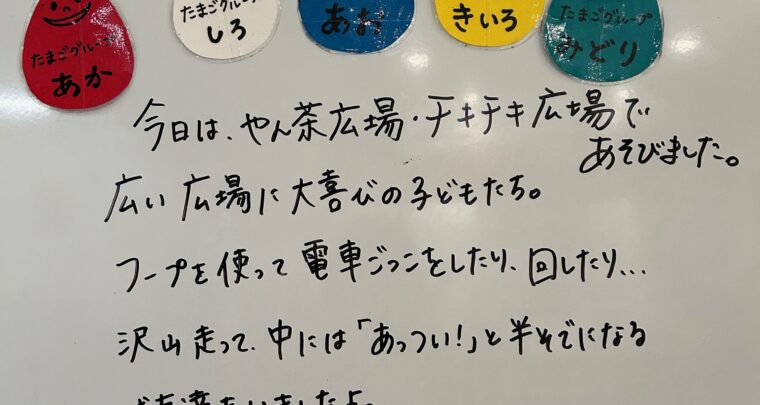 たまごグループ
あか
たまごグループ
しろ
あお
きいろ
たまごグループ
みどり
今日は、やん茶広場・チキチキ広場で
あそびました。
広い広場に大喜びの子どもたち。
フープを使って電車ごっこをしたり、回したり...
沢山走って、中には「あっつい!」と半そでになる
お友達もいましたよ。